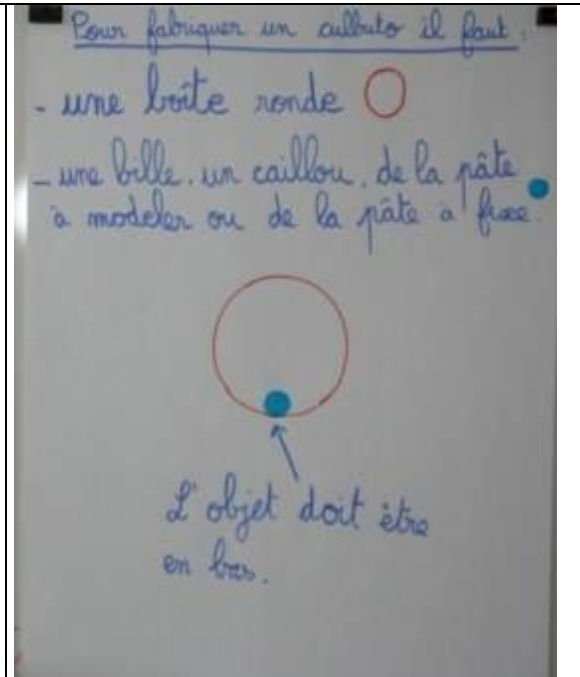 Pour fabriquer un culbuto il faut :
- une boîte ronde
- une bille, un caillou, de la pâte
à modeler ou de la pâte à fixe.
L'objet doit être
en bas.